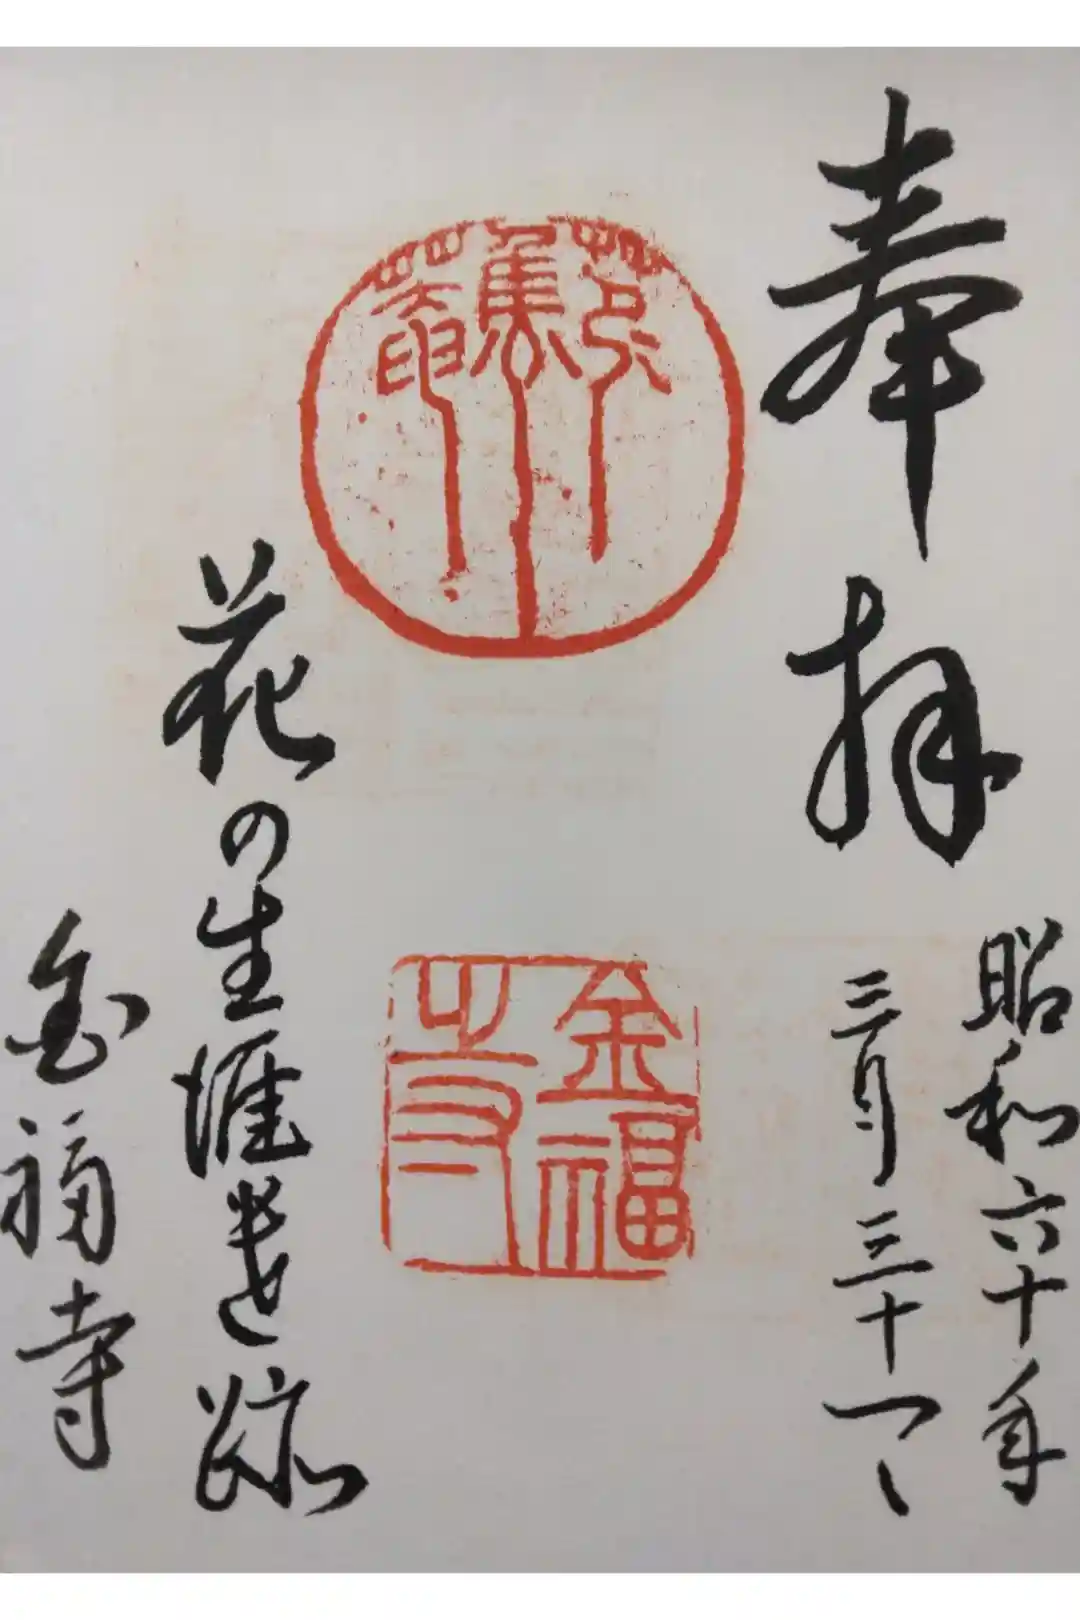 奉拝
昭和六十年
三月三十一日
芭蕉菴
金福
寺
花の生涯遺跡
金福寺